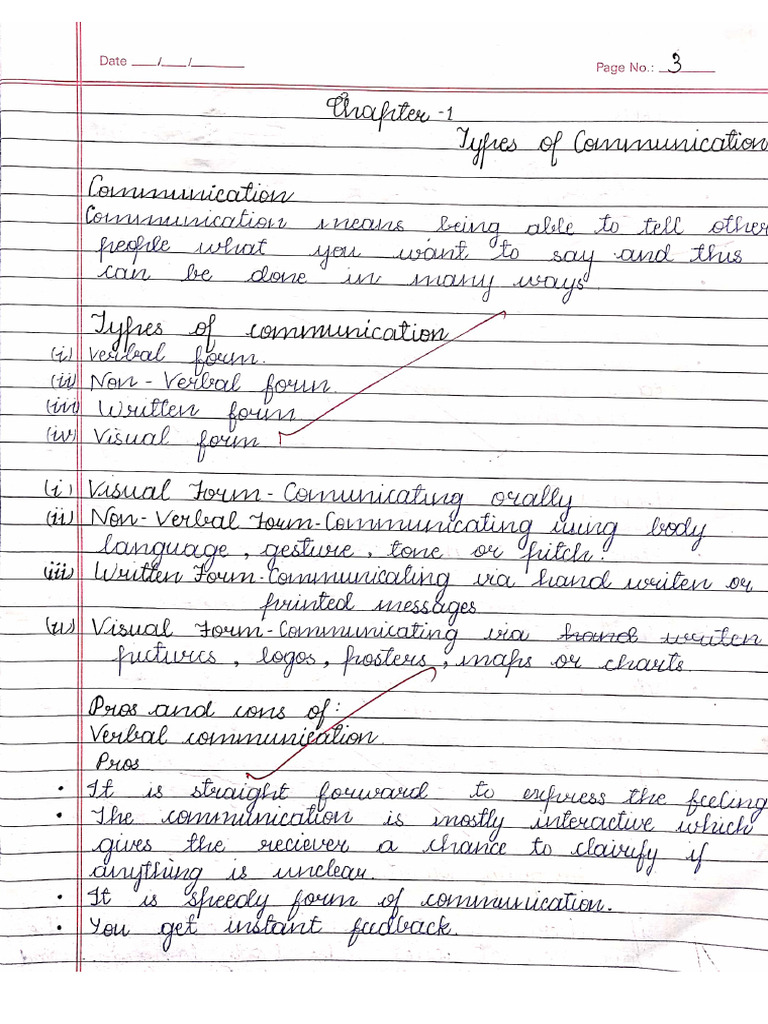 Date ___/___/______
Page No.: 3
Chapter -1
Types of Communication
Communication
Communication means being able to tell other
people what you want to say and this
can be done in many ways
Types of communication
(i) Verbal form.
(ii) Non - Verbal form.
(iii) Written form
(iv) Visual form
(i) Visual Form - Comunicating orally
(ii) Non-Verbal Form-Communicating using body
language, gesture, tone or pitch.
(iii) Written Form-Communicating via hand writen or
printed messages
(iv) Visual Form-Communicating via hand writen
pictures, logos, posters, maps or charts.
Pros and cons of:
Verbal communication
Pros
• It is straight forward to express the feeling
• The communication is mostly interactive which
gives the reciever a chance to clairify if
anything is unclear.
• It is speedy form of communication.
• You get instant feedback.